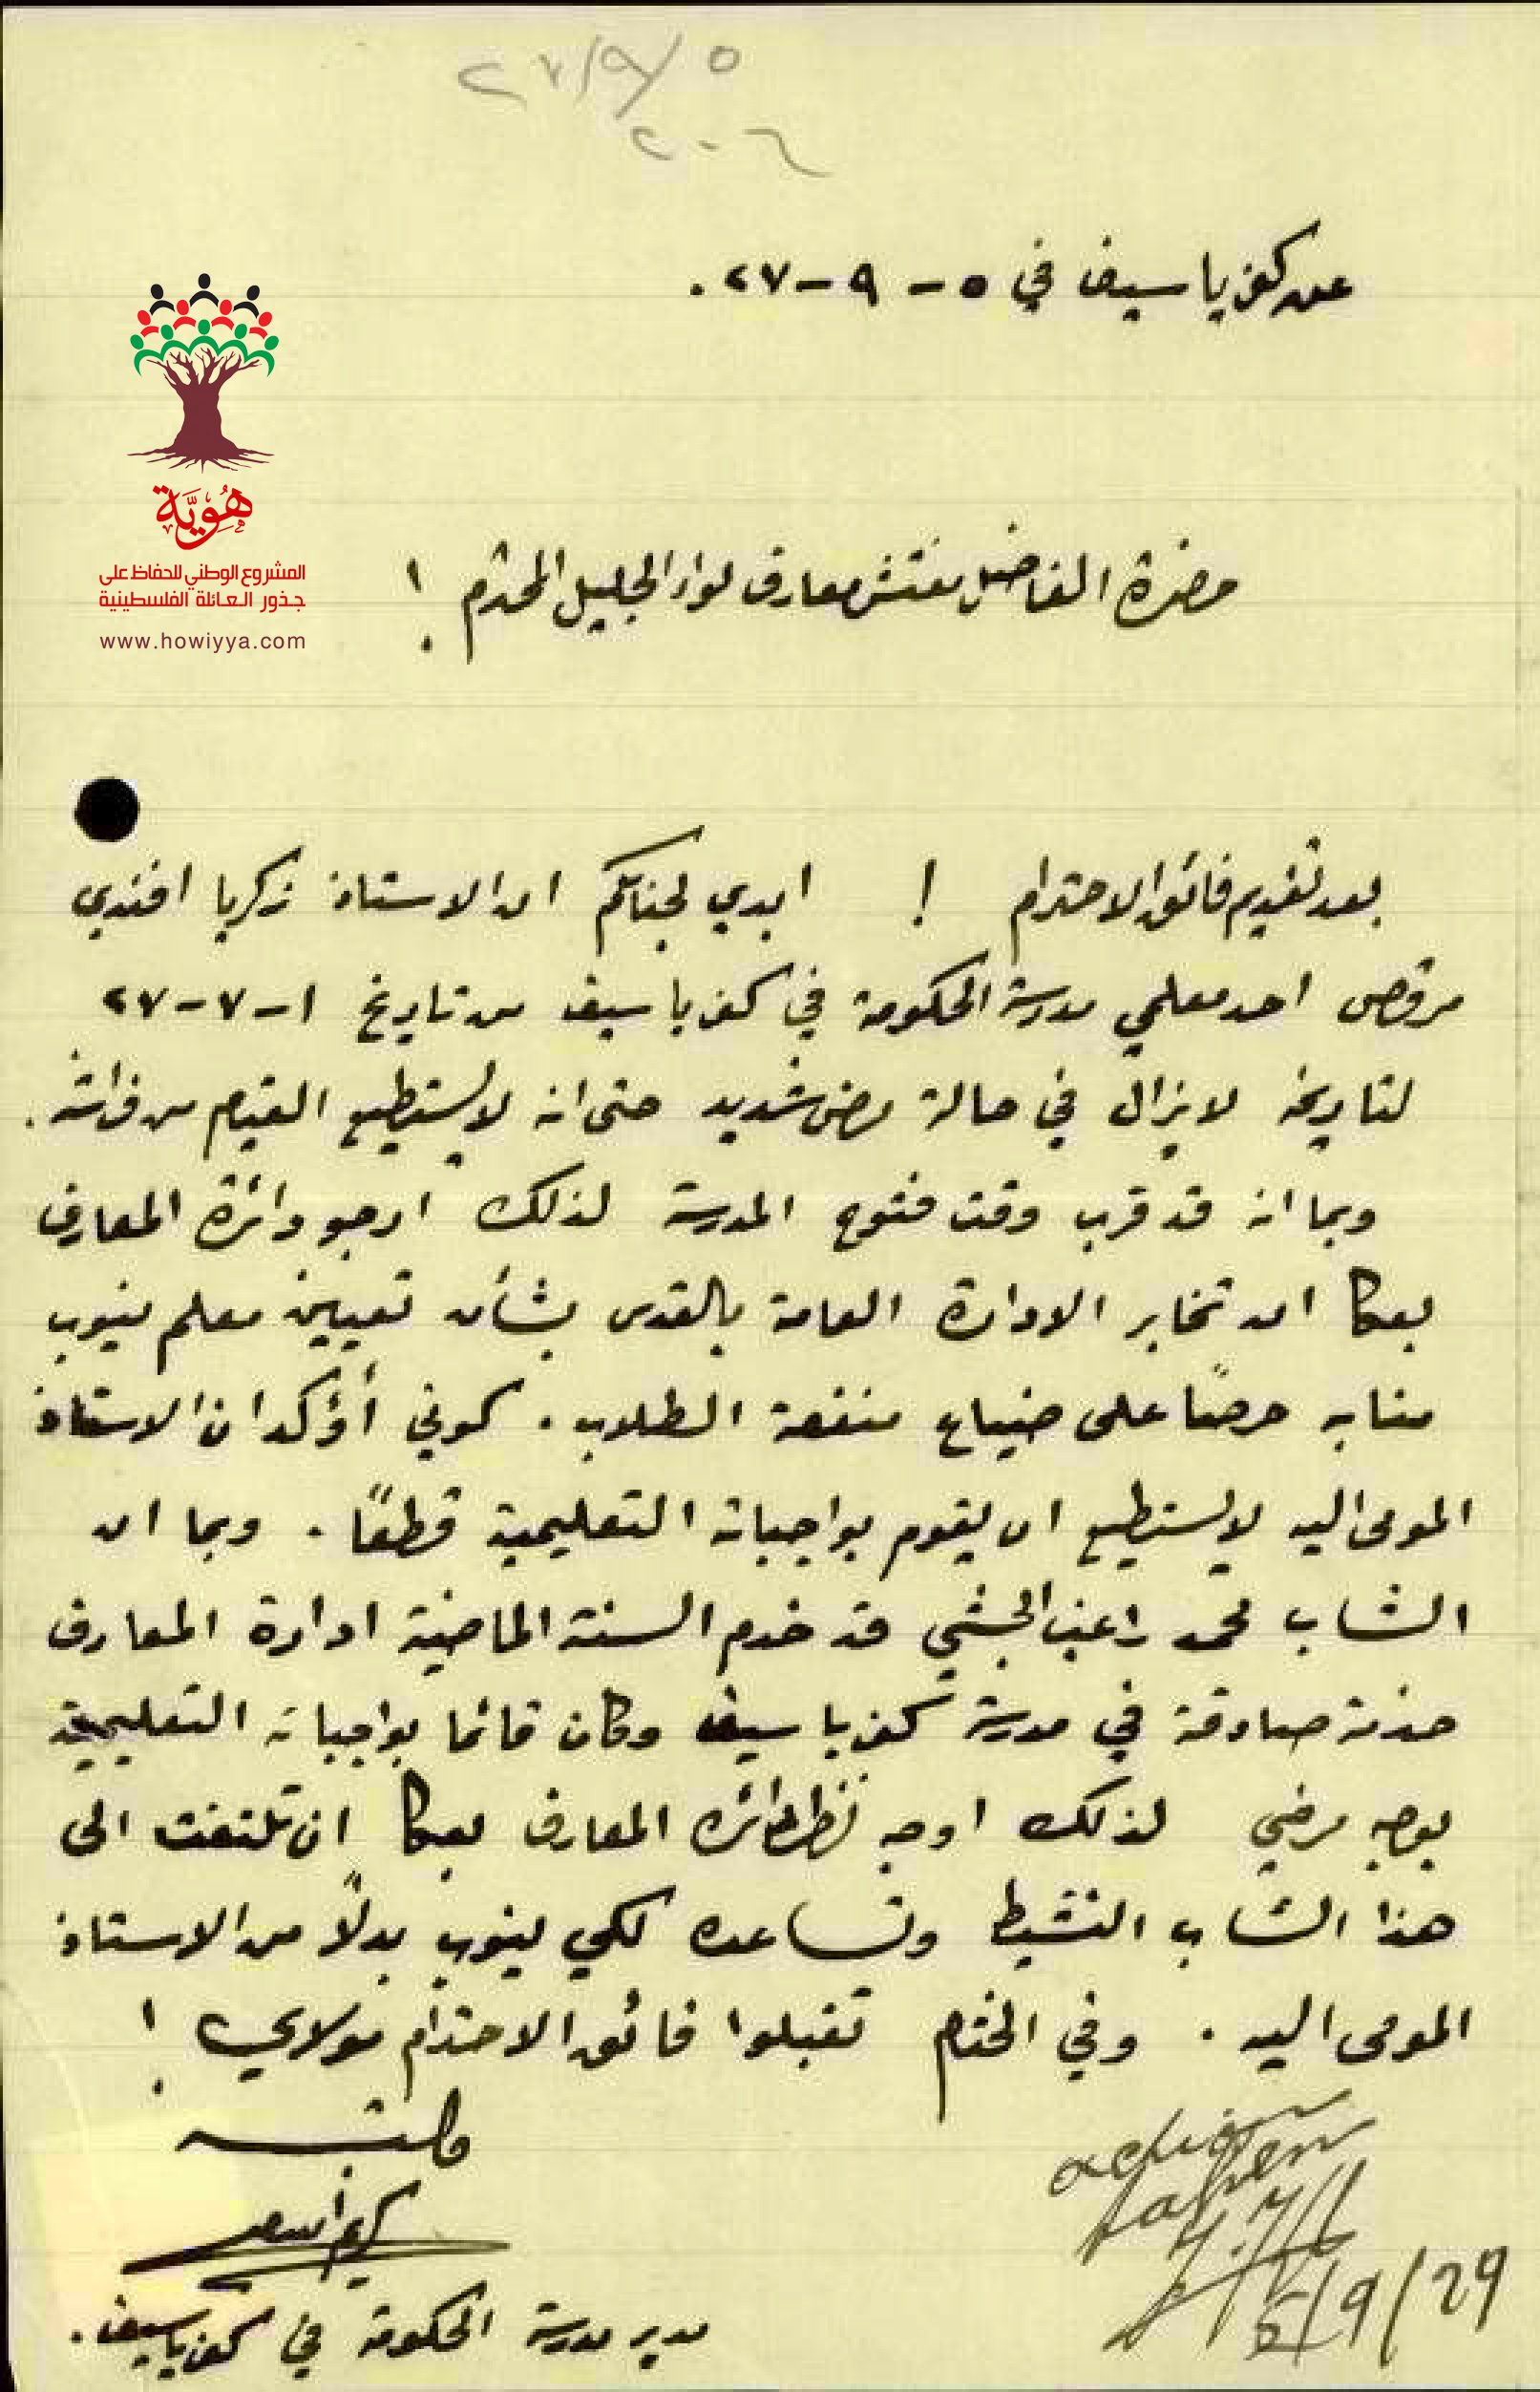 ٢٧/٩/٥
عن كفر ياسيف في ٥ - ٩ - ٢٧ .
هُوِيَّة
المشروع الوطني للحفاظ على
جذور العائلة الفلسطينية
www.howiyya.com
حضرة الفاضل مفتش معارف لواء الجليل المحترم !
بعد تقديم فائق الاحترام ! ابدي لجنابكم ان الاستاذ زكريا افندي
مرقص احد معلمي مدرسة الحكومة في كفر ياسيف من تاريخ ١ - ٧ - ٢٧
لتاريخه لا يزال في حالة مرض شديد حتى انه لا يستطيع القيام من فراشه .
وبما انه قد قرب وقت فتوح المدرسة لذلك ارجو دائرة المعارف
بعكا ان تخابر الادارة العامة بالقدس بشأن تعيين معلم ينوب
منابه حرصًا على ضياع منفعة الطلاب . كوني أؤكد ان الاستاذ
المومى اليه لا يستطيع ان يقوم بواجباته التعليمية قطعًا . وبما ان
الشاب محمد راغب الجشي قد خدم السنة الماضية ادارة المعارف
خدمة صادقة في مدرسة كفر ياسيف وكان قائما بواجباته التعليمية
بوجه مرضي لذلك اوجه نظر دائرة المعارف بعكا ان تلتفت الى
هذا الشاب النشيط وتساعده لكي ينوب بدلًا من الاستاذ
المومى اليه . وفي الختام تقبلوا فائق الاحترام مولاي !
كاتبه
مدير مدرسة الحكومة في كفر ياسيف .
action
taken
5/9/29